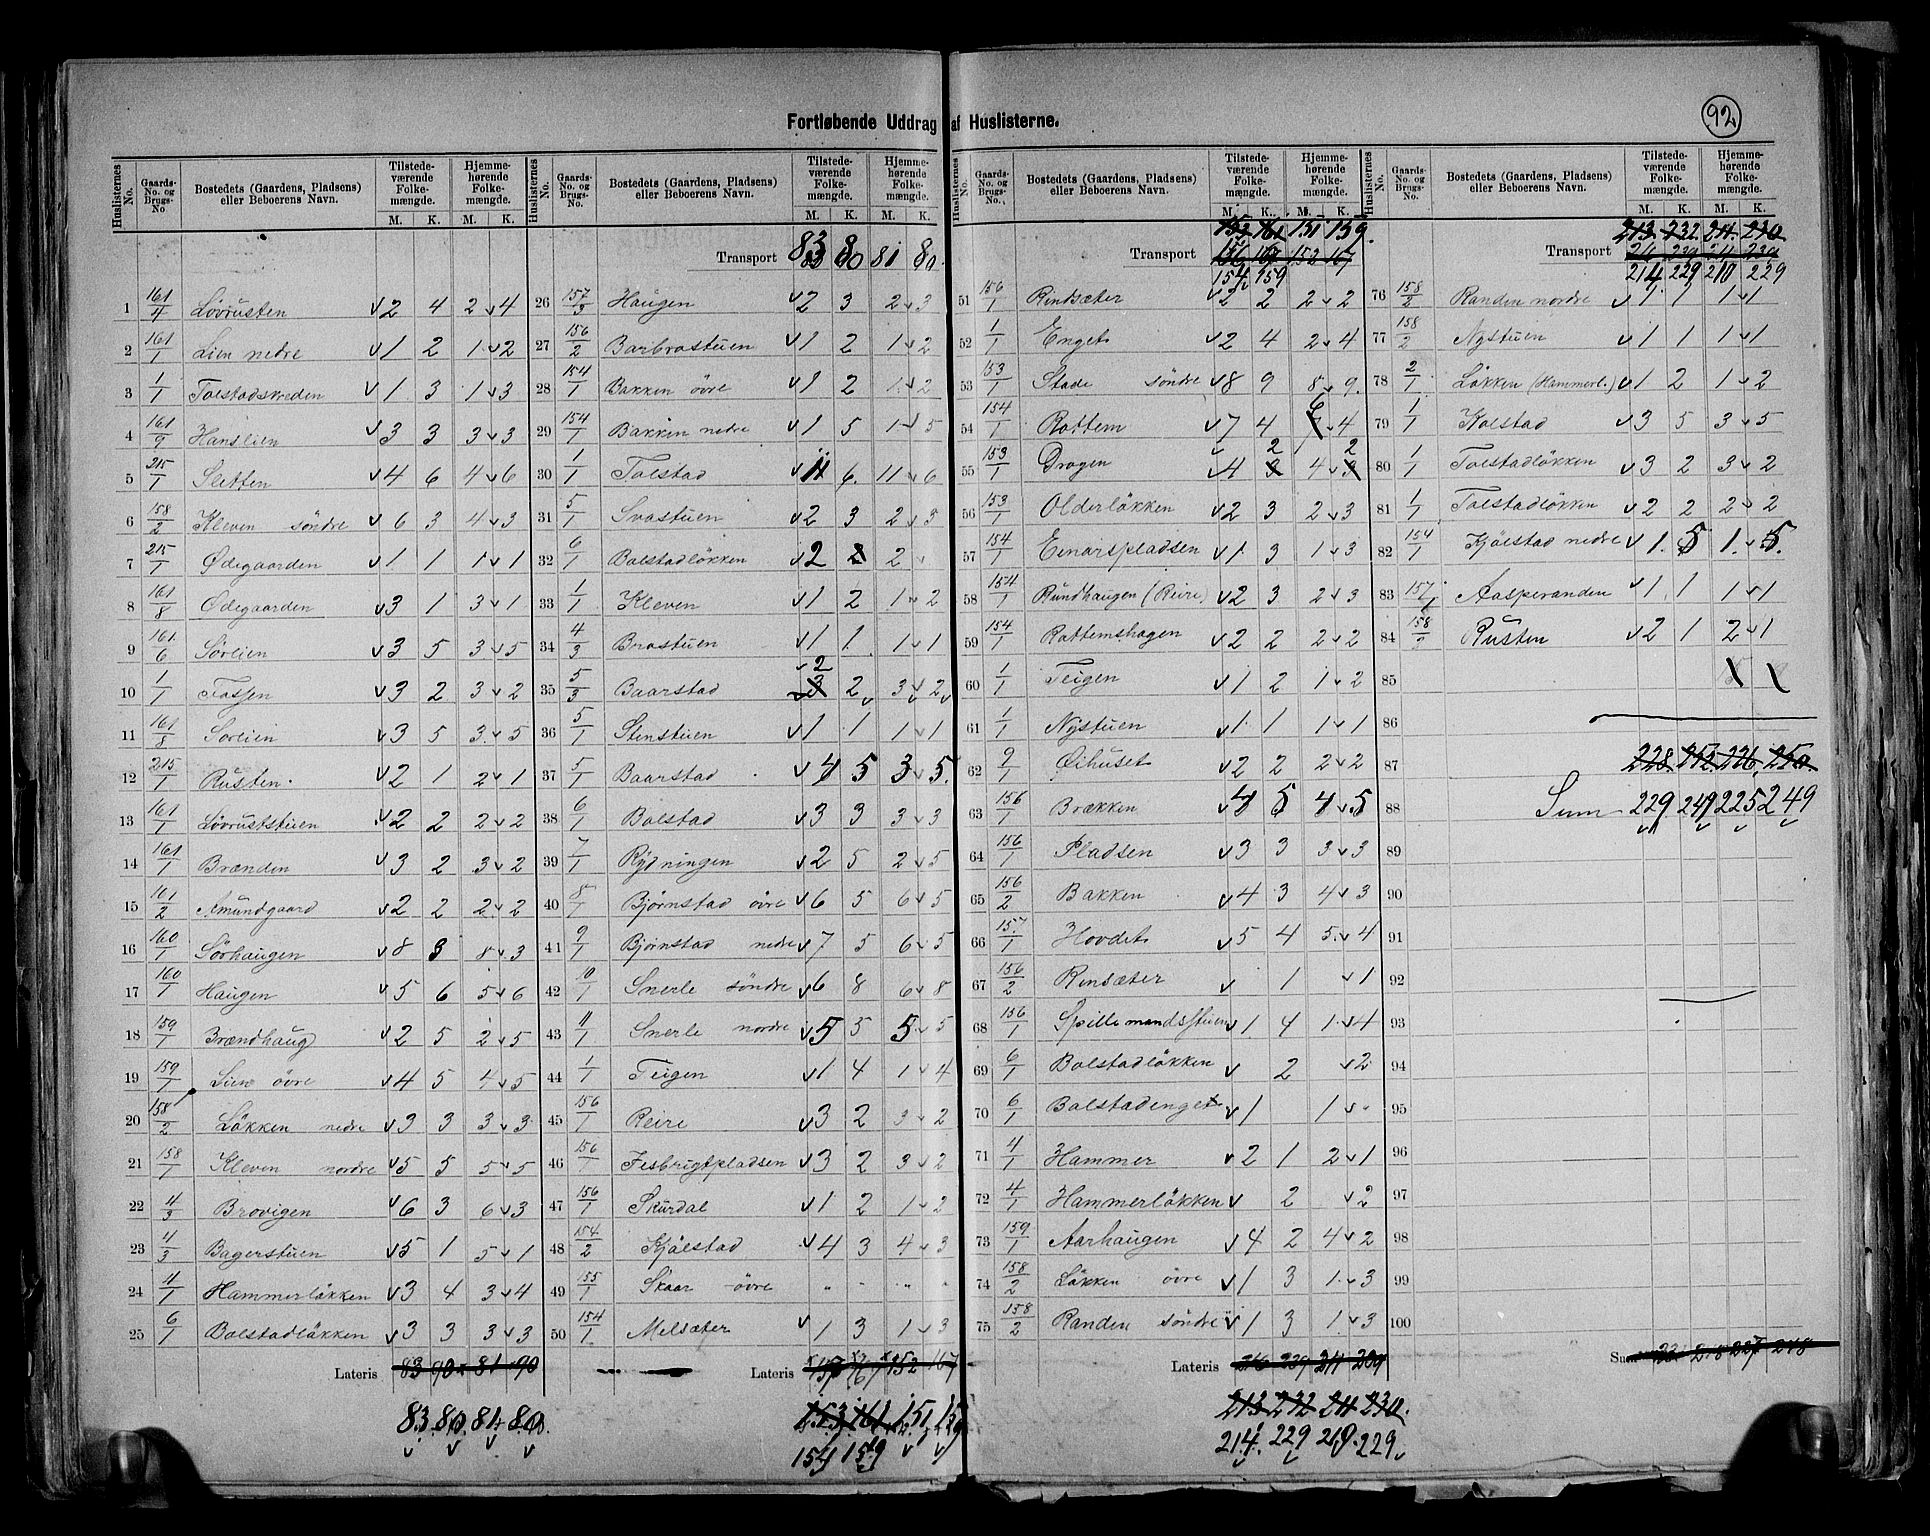 92
Fortløbende Uddrag af Huslisterne.
Huslisternes No. | Gaards-No. og Brugs-No | Bostedets (Gaardens, Pladsens) eller Beboerens Navn. | Tilstedeværende Folkemængde. M. K. | Hjemmehørende Folkemængde. M. K.
1 161/4 Lövrusten 2 4 2 4
2 161/1 Lien nedre 1 2 1 2
3 1/1 Tolstadsveden 1 3 1 3
4 161/9 Hanslien 3 3 3 3
5 215/1 Sletten 4 6 4 6
6 158/2 Kleven söndre 6 3 4 3
7 215/1 Ødegaarden 1 1 1 1
8 161/8 Ødegaarden 3 1 3 1
9 161/6 Sörlien 3 5 3 5
10 1/1 3 2 3 2
11 161/8 Sorlien 3 5 3 5
12 215/1 Rusten 2 1 2 1
13 161/1 Lövruststuen 2 2 2 2
14 161/1 Brænden 3 2 3 2
15 161/2 Amundgaard 2 2 2 2
16 160/1 Sörhaugen 8 3 8 3
17 160/1 Haugen 5 6 5 6
18 159/1 Brændhaug 2 5 2 5
19 159/1 Lien övre 4 5 4 5
20 158/2 Løkken nedre 3 3 3 3
21 158/1 Kleven nordre 5 5 5 5
22 4/3 Brovigen 6 3 6 3
23 4/3 Bagerstuen 5 1 5 1
24 4/1 Hammerløkken 3 4 3 4
25 6/1 Bolstadløkken 3 3 3 3
Lateris 83 90 81 90
83. 80. 81. 80.
Transport 83 80 81 80
26 157/3 Haugen 2 3 2 3
27 156/2 Barbrostuen 1 2 1 2
28 154/1 Bakken övre 1 2 1 2
29 154/1 Bakken nedre 1 5 1 5
30 1/1 Tolstad 11 6 11 6
31 5/1 Svastuen 2 3 2 3
32 6/1 Bolstadløkken 2 2 2
33 1/1 Kleven 1 2 1 2
34 4/3 Brostuen 1 1 1 1
35 5/3 Baarstad 2 3 2 3 2
36 5/1 Stenstuen 1 1 1 1
37 5/1 Baarstad 4 5 3 5
38 6/1 Bolstad 3 3 3 3
39 7/1 Rydningen 2 5 2 5
40 8/1 Bjørnstad övre 6 5 6 5
41 9/1 Bjørnstad nedre 7 5 6 5
42 10/1 Snerle söndre 6 8 6 8
43 11/1 Snerle nordre 5 5 5 5
44 1/1 Teigen 1 4 1 4
45 156/1 Reire 3 2 3 2
46 156/1 3 2 3 2
47 156/1 Skurdal 1 2 1 2
48 154/2 Kjölstad 4 3 4 3
49 155/1 Skaar övre " " " "
50 154/1 Melsæter 1 3 1 3
Lateris 157 167 152 167
153 161 151 159
154 159
Transport 153 161 151 159.
156 167 152 167
154 159
51 156/1 Rindsæter 2 2 2 2
52 1/1 Enget 2 4 2 4
53 153/1 Stade söndre 8 9 8 9
54 154/1 Rottem 7 4 6 4
55 153/1 Drogen 4 3 2 4 3 2
56 153/1 Olderløkken 2 3 2 3
57 154/1 Einarspladsen 1 3 1 3
58 154/1 Rundhaugen (Reire) 2 3 2 3
59 154/1 Rottemshagen 2 2 2 2
60 1/1 Teigen 1 2 1 2
61 1/1 Nystuen 1 1 1 1
62 9/1 Øihuset 2 2 2 2
63 156/1 Brækken 4 5 4 5
64 156/1 Pladsen 3 3 3 3
65 156/2 Bakken 4 3 4 3
66 157/1 Hovdet 5 4 5 4
67 156/2 Rinsæter 1 1
68 156/1 Spillemandsstuen 1 4 1 4
69 6/1 Bolstadløkken 2 2
70 6/1 Bolstadenget 1 1
71 4/1 Hammer 2 1 2 1
72 4/1 Hammerløkken 2 2
73 159/1 Aarhaugen 4 2 4 2
74 158/2 Løkken övre 1 3 1 3
75 158/2 Randen söndre 1 3 1 3
Lateris 216 239 211 239
213 232 211 230.
214. 229 210. 229
Transport 213 232 211 230
214 229 211 239
214 229 210 229
76 158/2 Randen nordre 1 1 1 1
77 158/2 Nystuen 1 1 1 1
78 2/1 Løkken (Hammerl.) 1 2 1 2
79 1/1 Kolstad 3 5 3 5
80 1/1 Tolstadløkken 3 2 3 2
81 1/1 Tolstadløkken 2 2 2 2
82 154/1 Kjölstad nedre 1 5 1 5
83 157/1 Aasperanden 1 1 1 1
84 158/2 Rusten 2 1 2 1
85
86
87 228. 252. 226. 250.
88 Sum 229 249 225 249
89
90
91
92
93
94
95
96
97
98
99
100
Sum